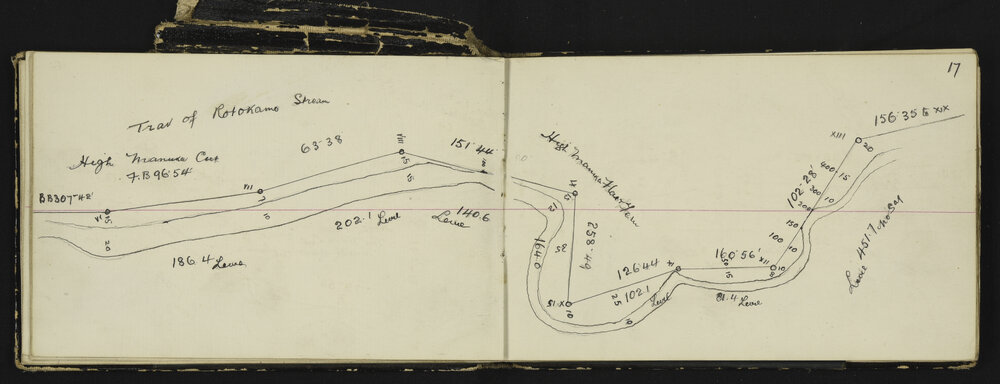 17
Trav of Rotokamo Stream
High Manuka Cut
F.B 96.54
BB307°42'
VI
15
20
186.4 Level
VII
7
10
63.38
VIII
15
15
202.1 Level
151.44
140.6
High Manuka
IX
12
258.49
25
164.0
X
10
126.44
102.1
25
Level
6
XI
160.56'
50
15
81.4 Level
XII
10
8
100
150
200
300
400
102°28'
10
10
15
XIII
20
156.35 to XIX
451.7